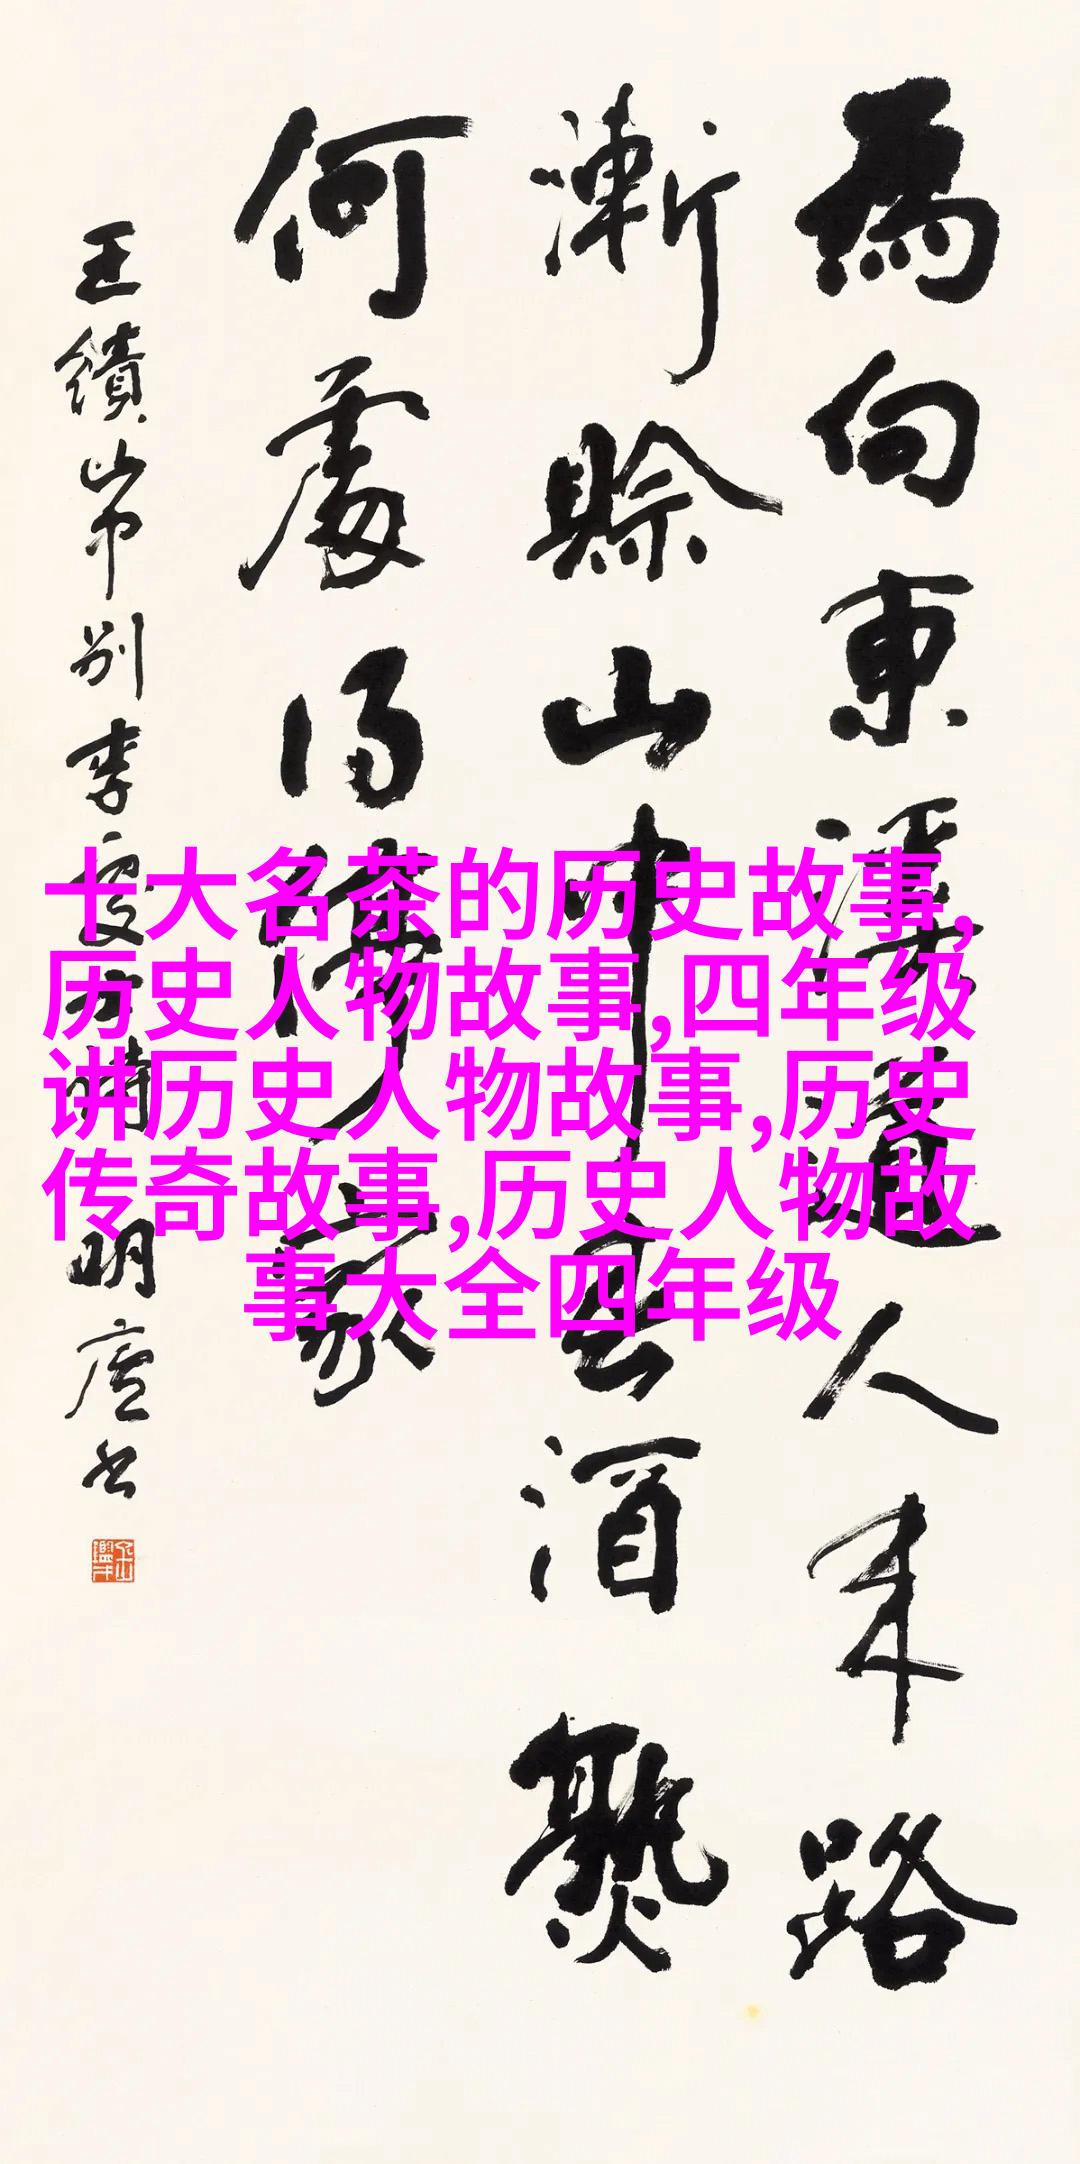 為向東溪道人来路
漸賒山中春酒熟
何處得停家
王績山中別李處士詩 明廬書
十大名茶的历史故事,
历史人物故事,四年级
讲历史人物故事,历史
传奇故事,历史人物故
事大全四年级